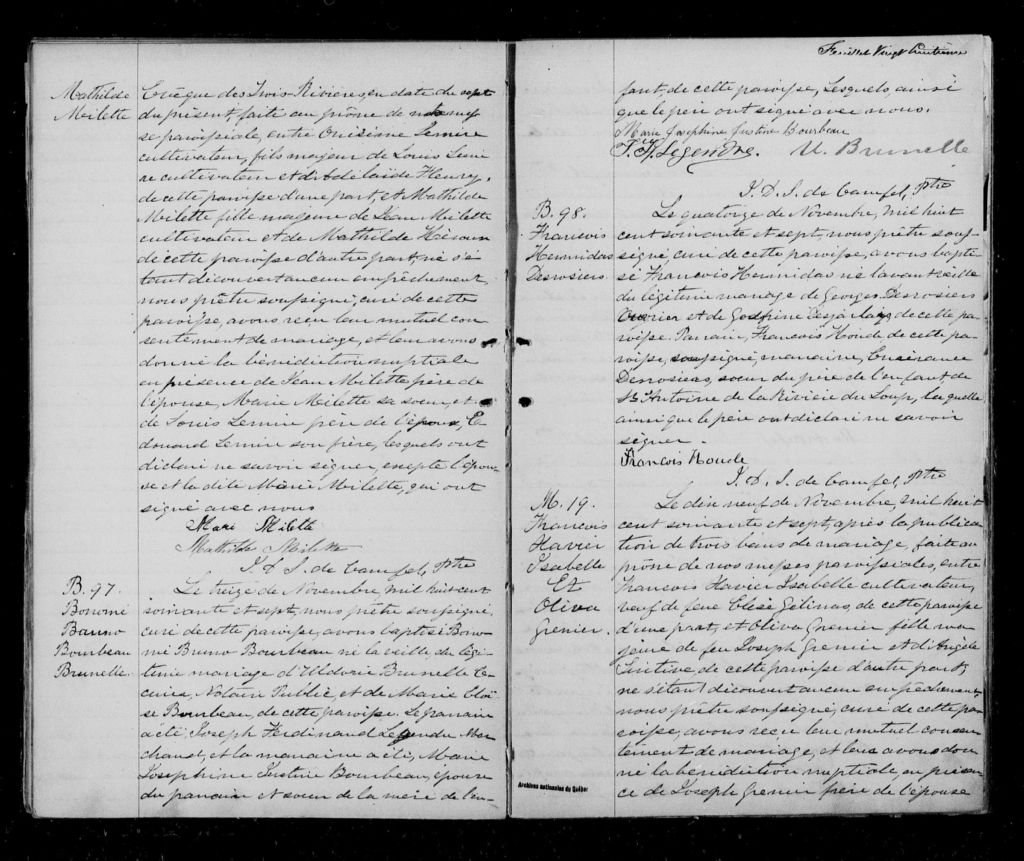 Mathilde
Milette
Evêque des Trois Rivières, en date du sept
du présent, faite au prône de notre mes
se paroissiale, entre Onisime Lemire
cultivateur, fils majeur de Louis Lemi
re cultivateur et d'Adelaide Fleury,
de cette paroisse d'une part, et Mathilde
Milette fille majeure de Jean Milette
cultivateur et de Mathilde Héroux
de cette paroisse d'autre part, ne s'é
tant découvert aucun empêchement,
nous prêtre soussigné, curé de cette
paroisse, avons reçu leur mutuel con
sentement de mariage, et leur avons
donné la bénédiction nuptiale
en présence de Jean Milette père de
l'épouse, Marie Milette sa sœur, et
de Louis Lemire père de l'époux, E
douard Lemire son frère, lesquels ont
déclaré ne savoir signer, excepté l'épou
se et la dite Marie Milette, qui ont
signé avec nous
Mari Milette
Mathilde Milette
J. D. S. de Camfel, Ptre
B. 97.
Bonomé
Bruno
Bourbeau
Brunelle.
Le treize de Novembre, mil huit cent
soixante et sept, nous prêtre soussigné,
curé de cette paroisse, avons baptisé Bono
mé Bruno Bourbeau né la veille, du légi-
time mariage d'Uldoric Brunelle E
cuier, Notaire Public, et de Marie Eloï
se Bourbeau, de cette paroisse. Le parrain
a été Joseph Ferdinand Legendre Mar
chand, et la marraine a été, Marie
Josephine Justine Bourbeau, épouse
du parrain et sœur de la mère de l'en-
Feuillet Vingt huitième
fant, de cette paroisse, Lesquels, ainsi
que le père ont signé avec nous.
Marie Josephine Justine Bourbeau
J. F. Legendre. U. Brunelle
J. D. S. de Camfel, Ptre
B. 98.
Francois
Hermidas
Desrosiers
Le quatorze de Novembre, mil huit
cent soixante et sept, nous prêtre sous-
signé, curé de cette paroisse, avons bapti
sé Francois Hermidas né l'avant veille
du légitime mariage de Georges Desrosiers
Ouvrier et de de cette pa-
roisse. Parrain, Francois Houde de cette pa-
roisse, soussigné, marraine, Emérance
Desrosiers, sœur du père de l'enfant, de
St Antoine de la Rivière du Loup, laquelle
ainsi que le père ont déclaré ne savoir
signer.
Francois Houde
J. D. S. de Camfel, Ptre
M. 19.
Francois
Xavier
Isabelle
Et
Oliva
Grenier.
Le dix neuf de Novembre, mil huit
cent soixante et sept, après la publica
tion de trois bans de mariage, faite au
prône de nos messes paroissiales, entre
Francois Xavier Isabelle cultivateur,
veuf de feue Elise Gélinas, de cette paroisse
d'une part, et Oliva Grenier fille ma
jeure de feu Joseph Grenier et d'Angèle
de cette paroisse d'autre part,
ne s'étant découvert aucun empêchement,
nous prêtre soussigné, curé de cette pa-
roisse, avons reçu leur mutuel consen
tement de mariage, et leur avons don
né la bénédiction nuptiale, en présen
ce de Joseph Grenier frère de l'épouse
Archives nationales du Québec